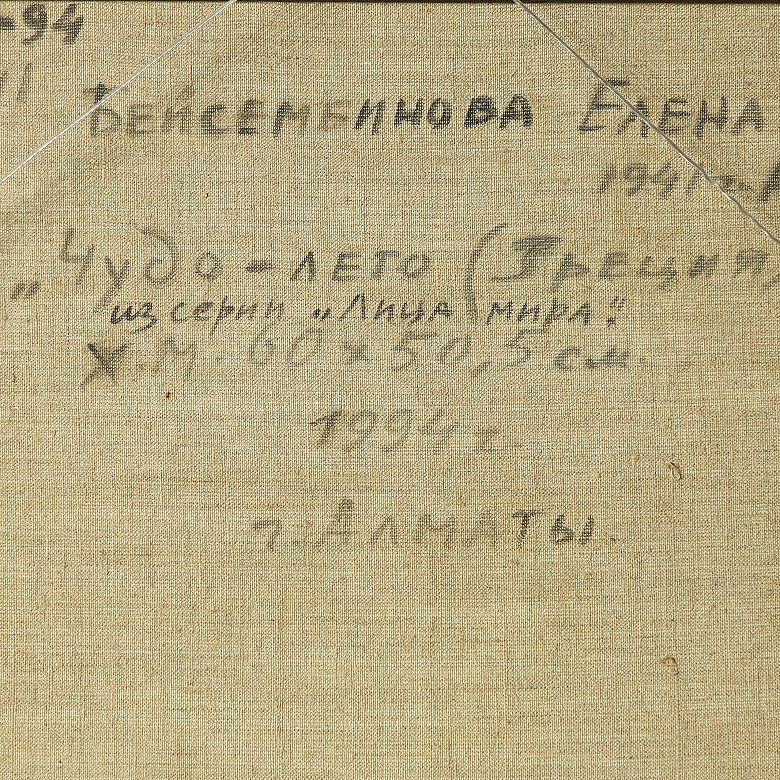 -94
БЕЙСЕМБИНОВА ЕЛЕНА
1941 г.
„Чудо-ЛЕТО (ГРЕЦИЯ)
из серии „Лица мира"
Х.М. 60х50,5 см.
1994 г.
г. АЛМАТЫ.